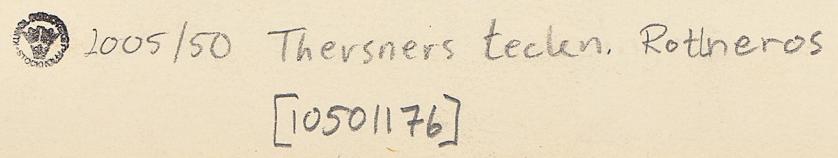 2005/50 Thersners teckn. Rottneros
[10501176]